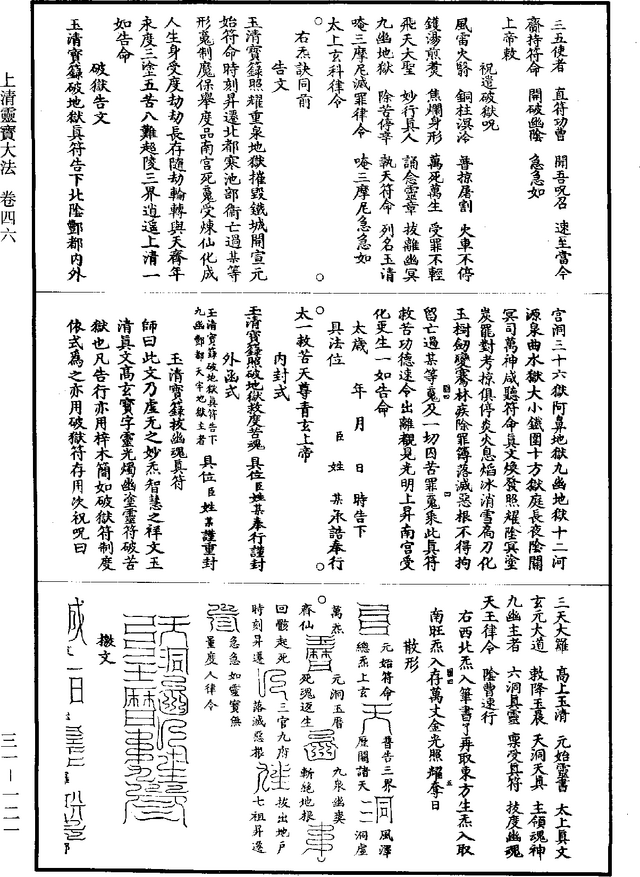 上清靈寶大法 卷四六
三五使者 直符功曹 開吾呪召 速至當今
齋持符命 開破幽陰 急急如
上帝敕
祝邉破獄呪
風雷火翳 銅柱溟泠 普掠屠割 火車不停
鑊湯煎煑 焦爛身形 萬死萬生 受罪不輕
飛天大聖 妙行真人 誦念靈章 拔離幽冥
九幽地獄 除苦停辛 執天符命 列名玉清
唵三摩尼滅罪律令 唵三摩尼急急如
太上玄科律令
右炁訣同前
告文
玉清寶籙照耀重泉地獄摧毀鐵城開宣元
始符命時刻昇遷北都寒池部衛亡過某等
形䰟制魔保舉度品南宮死䰟受煉仙化成
人生身受度劫劫長存隨劫輪轉與天齊年
永度三塗五苦八難超陵三界逍遥上清一
如告命
破獄告文
玉清寶籙破地獄真符告下北陰酆都內外
宮洞三十六獄阿鼻地獄九幽地獄十二河
源泉曲水獄大小鐵圍十方獄庭長夜陰關
冥司萬神咸聽符命真文煥發照耀陰冥塗
炭罷對考掠俱停炎火息焰冰消雪鬲刀化
玉樹劒變騫林疾除罪簿落滅惡根不得拘
留亡過某等䰟及一切囚苦罪䰟乘此真符
救苦功德速令出離覩見光明上昇南宮受
化更生一如告命
太歲 年 月 日 時告下
具法位 臣 姓 某承誥奉行
太一救苦天尊青玄上帝
內封式
玉清寶籙照破地獄救度苦魂 具位臣姓某奉行謹封
外函式
玉清寶籙破地獄真符告下
九幽酆都天牢地獄主者 具位臣姓某謹重封
玉清寶籙拔幽魂真符
師曰此文乃虛无之妙炁智慧之祥文玉
清真文高玄寶字靈光燭幽塗靈符破苦
獄也凡告行亦用梓木簡如破獄符制度
依式爲之亦用破獄符存用次祝呪曰
三天大羅 高上玉清 元始靈書 太上真文
玄元大道 敕降玉晨 天洞天真 主領魂神
九幽主者 六洞真靈 禀受真符 拔度幽魂
天王律令 陰曹速行
右西北炁入筆書了再取東方生炁入取
南旺炁入存萬丈金光照耀奪日
散形
元始符命 普告三界 風澤
總系上玄 歷關諸天 洞虛
萬炁 元洞玉曆 九泉幽奕
齊仙 死魂返生 斬絶地根
回骸起死 三官九府 拔出地戶
時刻昇遷 落滅惡根 七祖昇遷
急急如靈寶無
量度人律令
檄文
三一－一二一